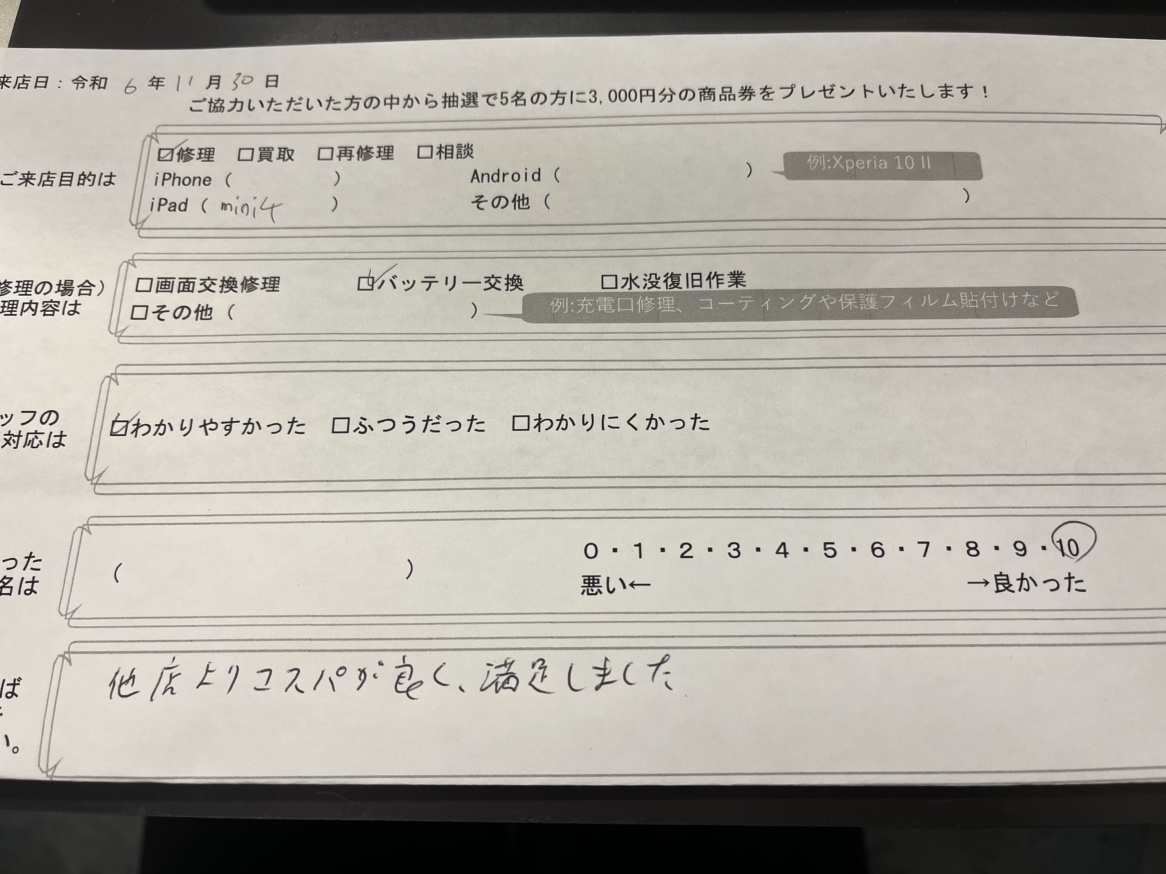 来店日：令和 6 年 11 月 30 日
ご協力いただいた方の中から抽選で5名の方に3,000円分の商品券をプレゼントいたします！
ご来店目的は
☑修理 □買取 □再修理 □相談
iPhone（ ） Android（ ） 例:Xperia 10 II
iPad（ mini4 ） その他（ ）
修理の場合）
理内容は
□画面交換修理 ☑バッテリー交換 □水没復旧作業
□その他（ ） 例:充電口修理、コーティングや保護フィルム貼付けなど
ッフの
対応は
☑わかりやすかった □ふつうだった □わかりにくかった
った
名は
（ ） 0・1・2・3・4・5・6・7・8・9・10
悪い← →良かった
ば
い。
他店よりコスパが良く、満足しました